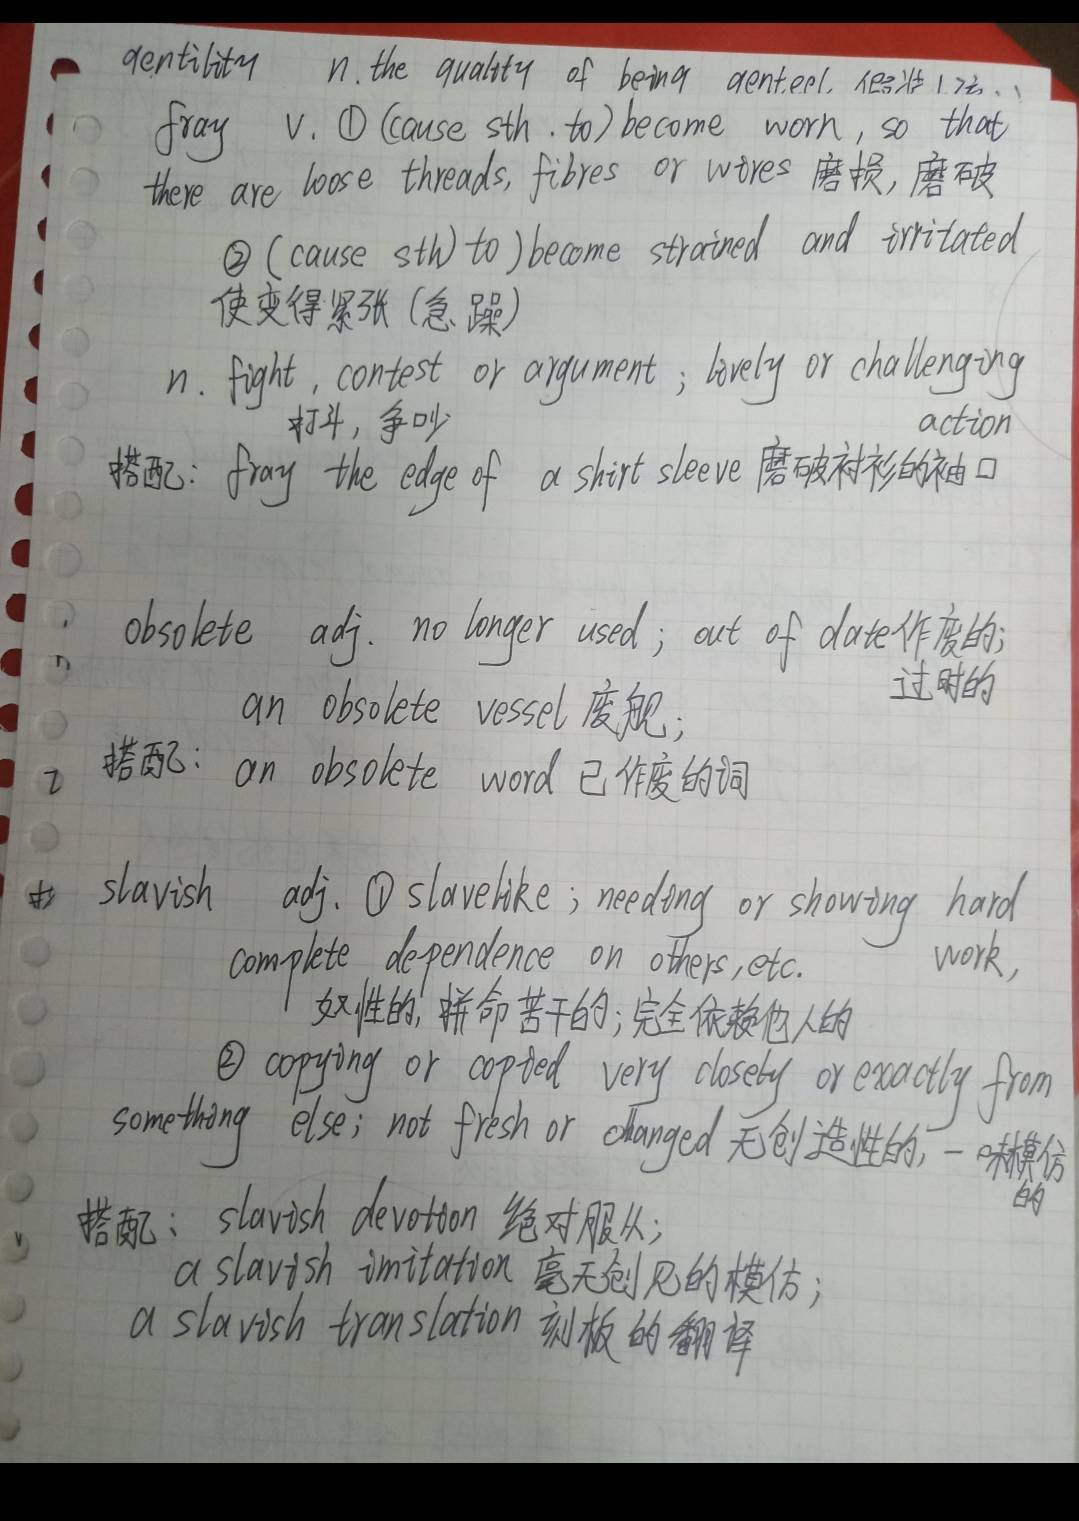 gentility n. the quality of being genteel.
fray v. ① (cause sth. to) become worn, so that
there are loose threads, fibres or wires 磨损, 磨破
② (cause sth) to) become strained and irritated
使变得紧张 (急躁)
n. fight, contest or argument; lively or challenging
打斗, 争吵 action
搭配: fray the edge of a shirt sleeve 磨破衬衫的袖口
obsolete adj. no longer used; out of date 作废的;
过时的
an obsolete vessel 废舰;
搭配: an obsolete word 已作废的词
slavish adj. ① slavelike; needing or showing hard
complete dependence on others, etc. work,
奴性的, 拼命苦干的; 完全依赖他人的
② copying or copied very closely or exactly from
something else; not fresh or changed 无创造性的, 一味模仿
的
搭配: slavish devotion 绝对服从;
a slavish imitation 毫无创见的模仿;
a slavish translation 刻板的翻译